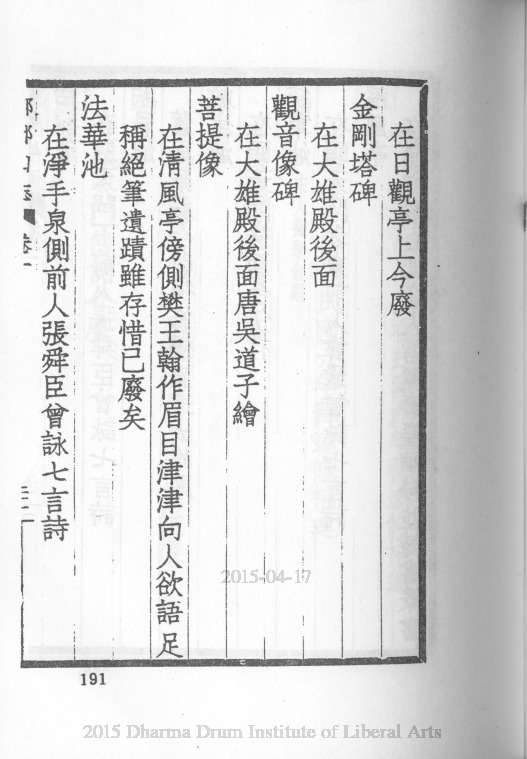 在日觀亭上今廢
金剛塔碑
在大雄殿後面
觀音像碑
在大雄殿後面唐吳道子繪
菩提像
在清風亭傍側樊王翰作眉目津津向人欲語足
稱絕筆遺蹟雖存惜已廢矣
法華池
在淨手泉側前人張舜臣曾詠七言詩
191
2015-04-17
2015 Dharma Drum Institute of Liberal Arts